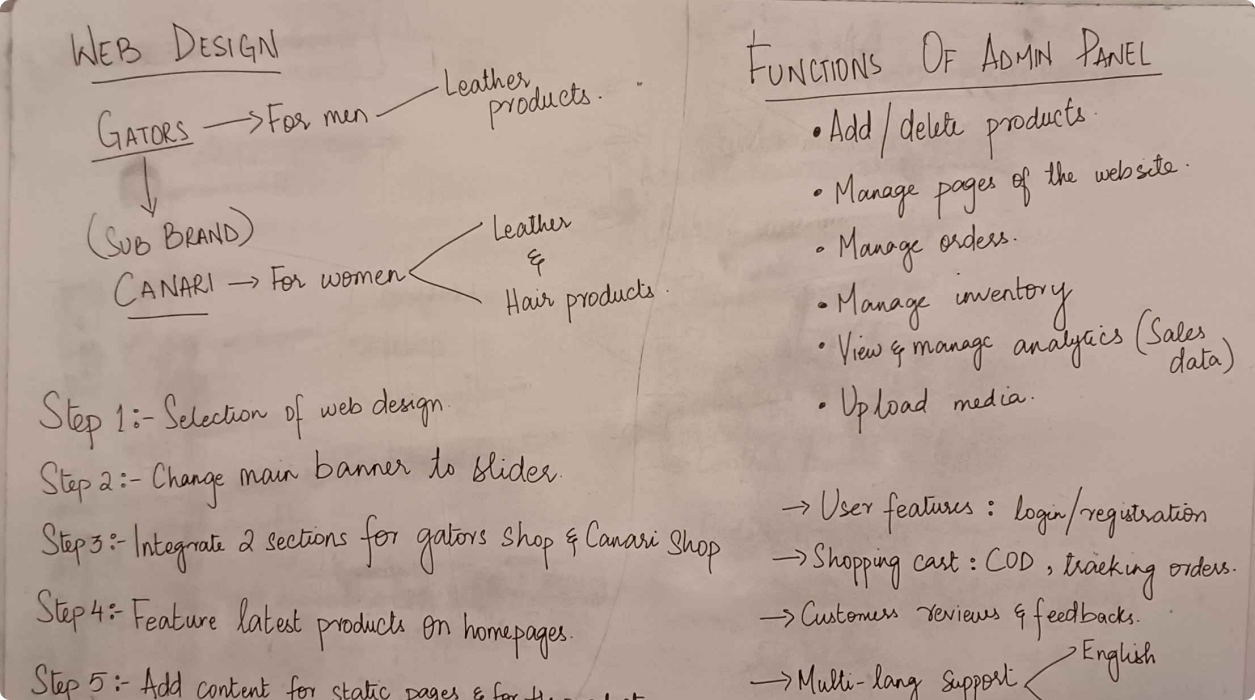 WEB DESIGN
GATORS → For men — Leather
products.
(SUB BRAND)
CANARI → For women
Leather
&
Hair products.
Step 1:- Selection of web design.
Step 2:- Change main banner to slider.
Step 3:- Integrate 2 sections for gators shop & Canari Shop
Step 4:- Feature latest products on homepages.
Step 5:- Add content for static pages & for
FUNCTIONS OF ADMIN PANEL
• Add/delete products.
• Manage pages of the website.
• Manage orders.
• Manage inventory
• View & manage analytics (Sales
data)
• Upload media.
→ User features : login/registration
→ Shopping cart : COD, tracking orders.
→ Customers reviews & feedbacks.
→ Multi-lang support
English